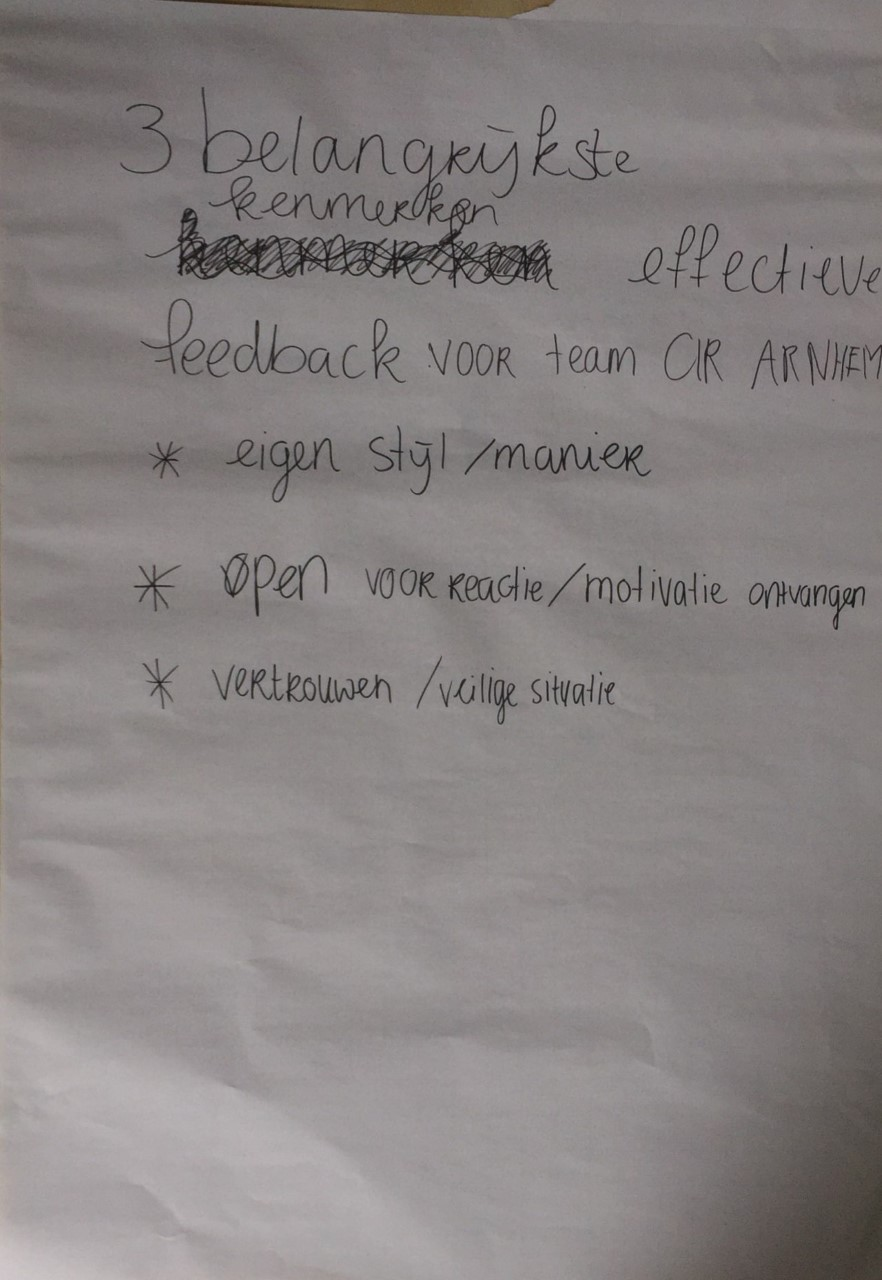 3 belangrijkste
kenmerken
effectieve
feedback voor team CIR ARNHEM
* eigen stijl/manier
* open voor reactie/motivatie ontvangen
* vertrouwen/veilige situatie